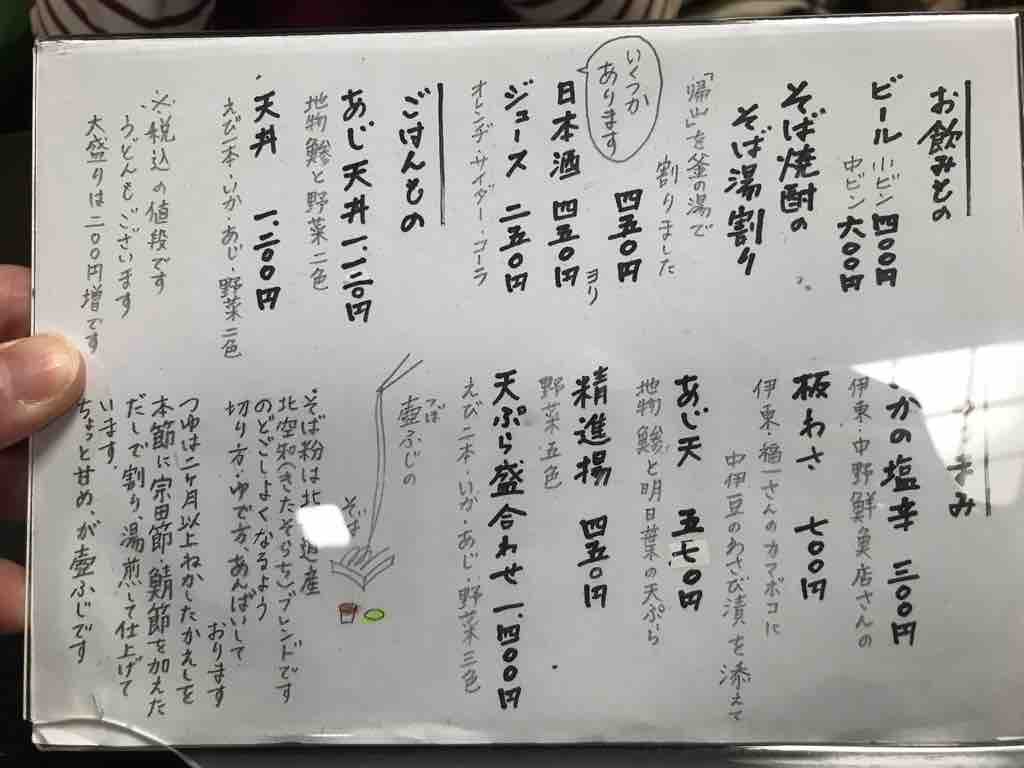 お飲みもの
ビール 小ビン 四〇〇円
中ビン 六〇〇円
そば焼酎の
そば湯割り
四五〇円
「帰山」を釜の湯で
割りました
いくつか
あります
日本酒 四五〇円ヨリ
ジュース 二五〇円
オレンヂ・サイダー・コーラ
ごはんもの
あじ天丼 一、一二〇円
地物鯵と野菜二色
天丼 一、二〇〇円
えび一本・いか・あじ・野菜二色
※税込の値段です
うどんもございます
大盛りは二〇〇円増です
まみ
かの塩辛 三〇〇円
伊東・中野鮮魚店さんの
板わさ 七〇〇円
伊東・福一さんのカマボコに
中伊豆のわさび漬を添えて
あじ天 五七〇円
地物鯵と明日葉の天ぷら
精進揚 四五〇円
野菜五色
天ぷら盛合わせ 一、四〇〇円
えび二本・いか・あじ・野菜三色
壺ふじの
つぼ
そば
そば粉は北 道産
北空知(きたそらち)ブレンドです
のどごしよくなるよう
切り方・ゆで方、あんばいして
おります
つゆは二ヶ月以上ねかしたかえしを
本節に宗田節・鯖節を加えた
だしで割り、湯煎して仕上げて
います。
ちょっと甘め、が壺ふじです